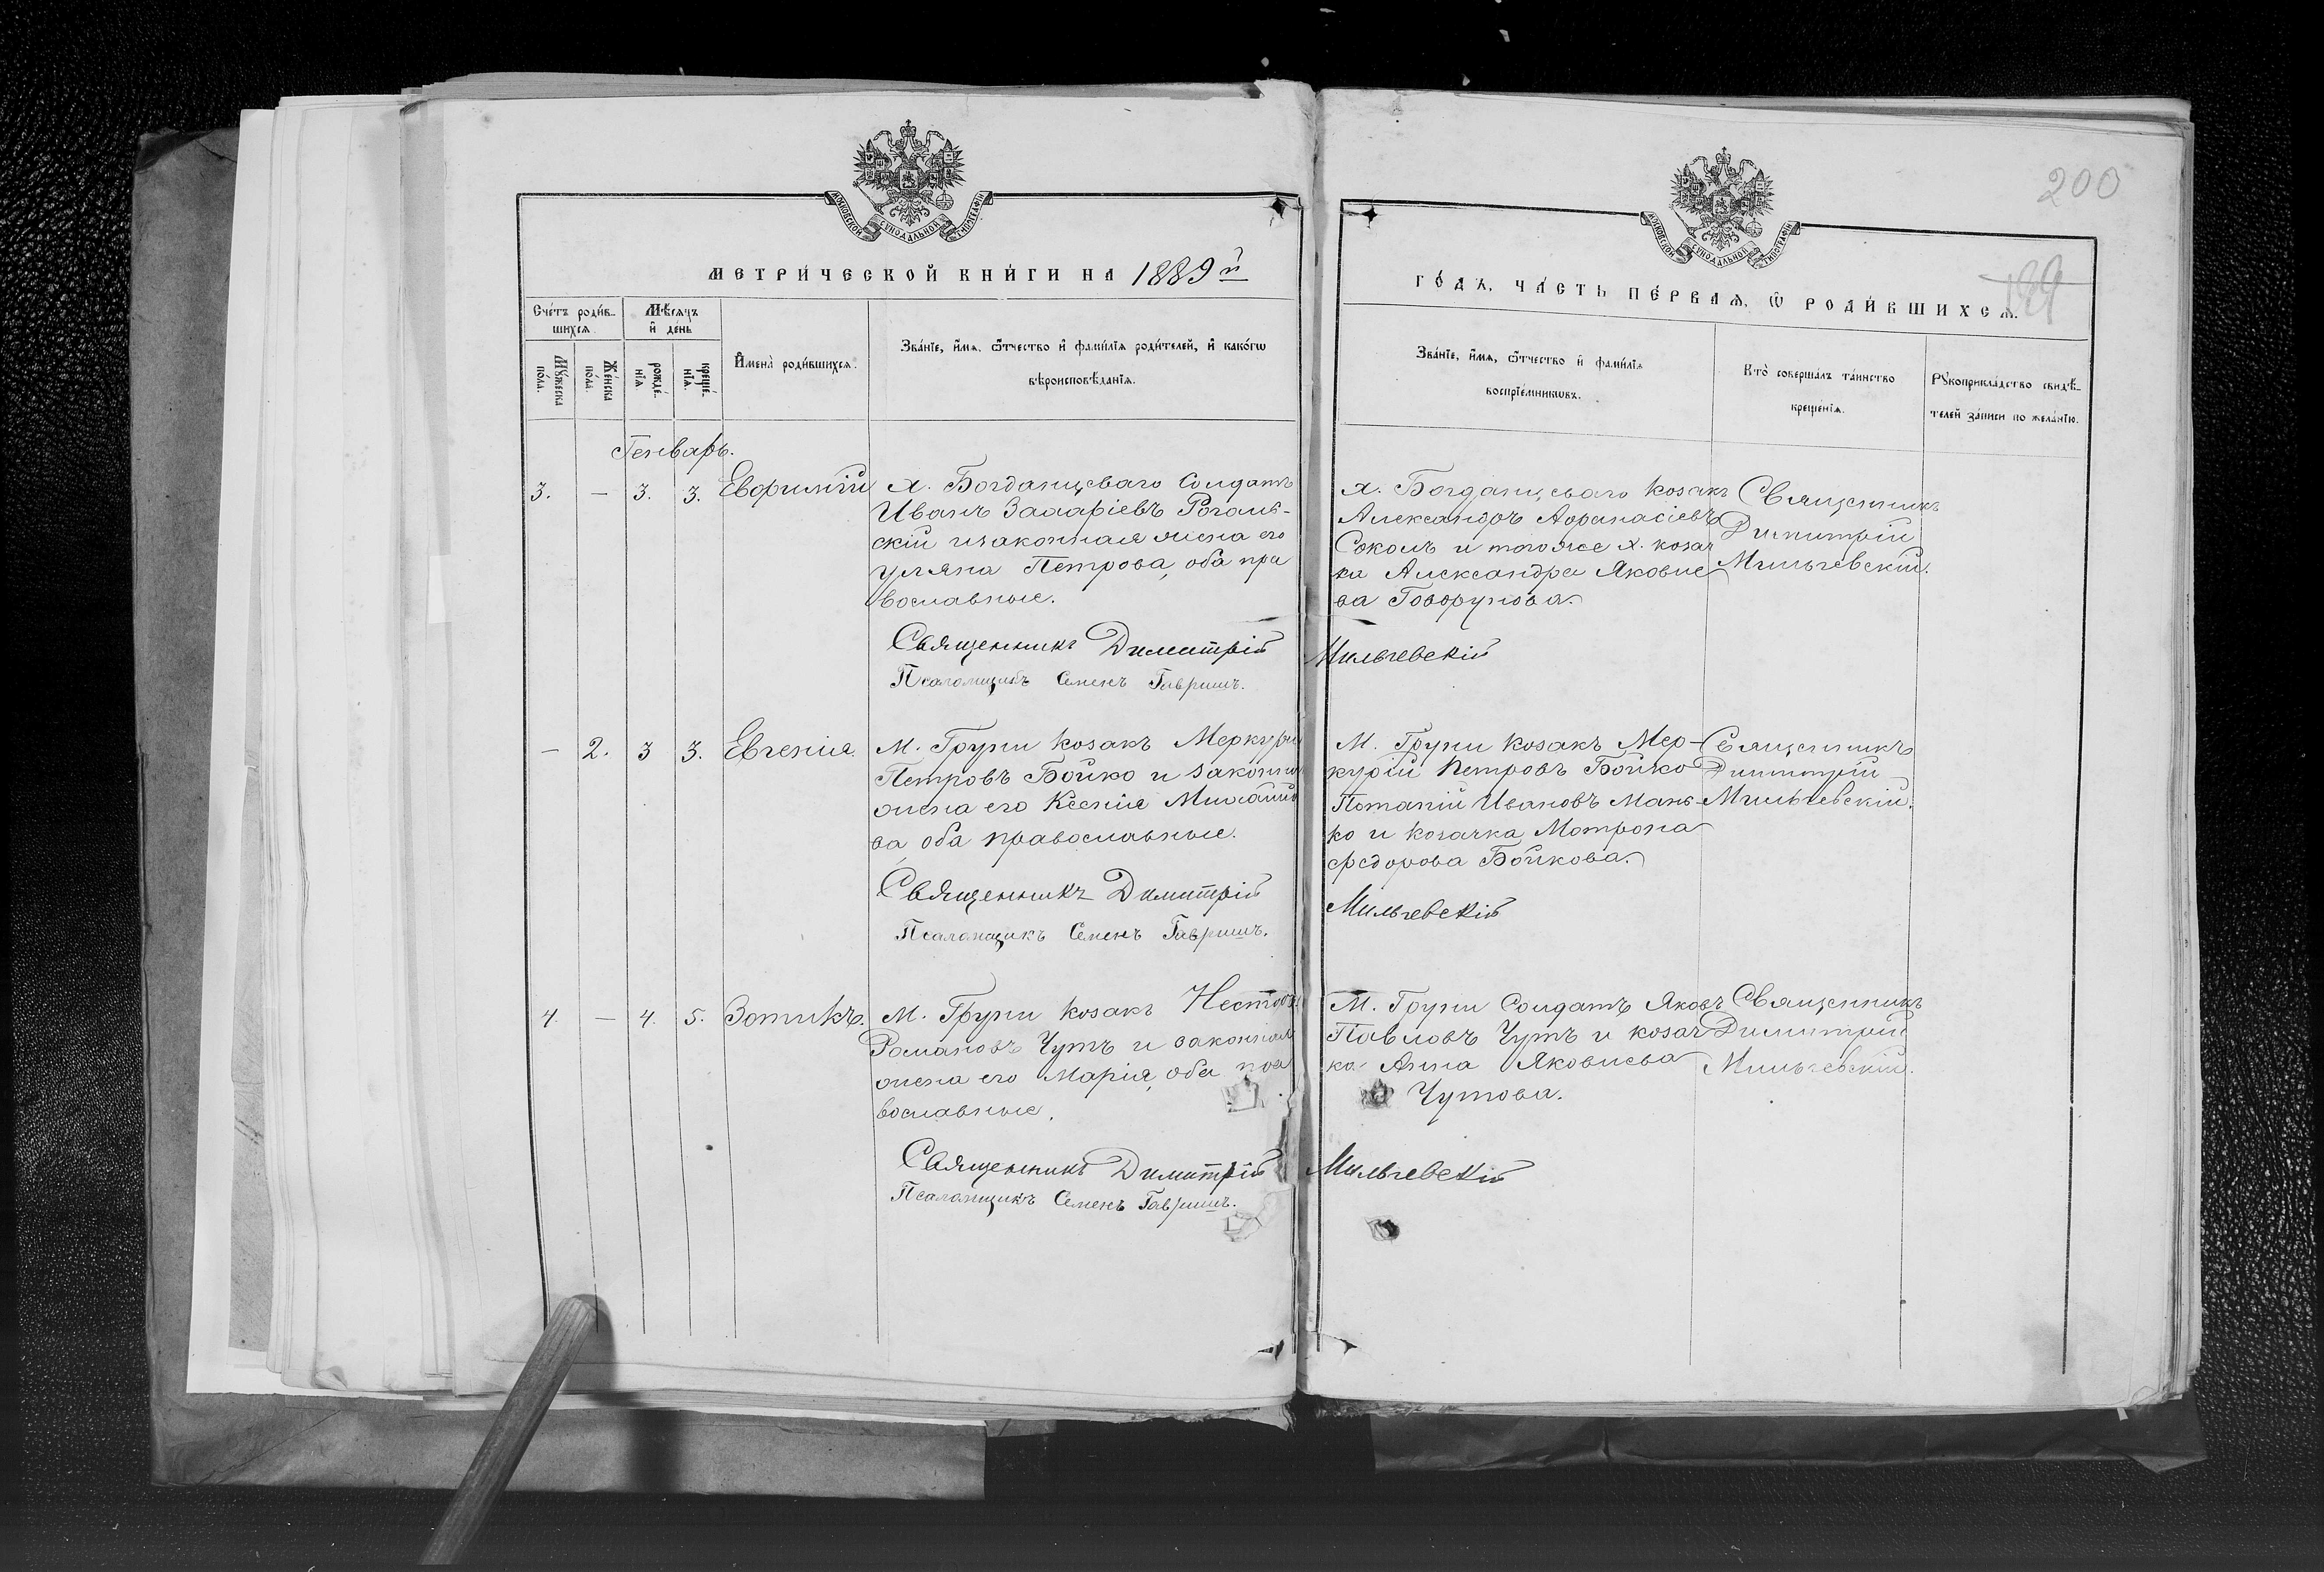 МОСКОВСКОЙ СУНОДАЛЬНОЙ ТИПОГРАФІИ
МЕТРИ́ЧЕСКОЙ КНИ́ГИ НА 1889й
Сче́тъ роди́в-
шихсѧ.
Мѣ́сѧцъ
и҆ де́нь
Мꙋ́жеска
по́ла.
Же́нска
по́ла.
рожде́-
нїѧ.
креще́-
нїѧ.
И҆мена̀ роди́вшихсѧ.
Зва́нїе, и҆́мѧ, ѻ҆́тчество и҆ фами́лїѧ роди́телей, и҆ како́гѡ
вѣроисповѣ́данїѧ.
Генварь.
3. — 3. 3. Евфимій
х. Богданцеваго Солдатъ
Иванъ Захаріевъ Рогаль-
скій и законная жена его
Уляна Петрова, оба пра
вославные.
Священникъ Димитрій
Псаломщикъ Семенъ Гавришъ.
— 2. 3 3. Евгенія.
М. Груни козакъ Меркурій
Петровъ Бойко и законна
жена его Ксенія Михайло
ва оба православные.
Священникъ Димитрій
Псаломщикъ Семенъ Гавришъ.
4. — 4. 5. Зотикъ.
М. Груни козакъ Несторъ
Романовъ Чутъ и законная
жена его Марія, оба пра
вославные.
Священникъ Димитрій
Псаломщикъ Семенъ Гавришъ.
200
МОСКОВСКОЙ СУНОДАЛЬНОЙ ТИПОГРАФІИ
189
ГО́ДЪ, ЧА́СТЬ ПЕ́РВАѦ, Ѡ҆ РОДИ́ВШИХСѦ.
Зва́нїе, и҆́мѧ, ѻ҆́тчество и҆ фами́лїѧ
воспрїе́мникѡвъ.
Кто̀ соверша́лъ та́инство
креще́нїѧ.
Рꙋкоприкла́дство свидѣ́-
телей за́писи по жела́нїю.
х. Богданцеваго козакъ
Александръ Афанасіевъ
Соколъ и того же х. козач
ка Александра Яковле
ва Говорунова.
Священникъ
Димитрій
Мильчевскій.
Мильчевскій
М. Груни козакъ Мер-
курій Петровъ Бойко
Потапій Ивановъ Мань-
ко и козачка Мотрона
Федорова Бойкова.
Священникъ
Димитрій
Мильчевскій.
Мильчевскій
М. Груни Солдатъ Яковъ
Павловъ Чутъ и козач
ка Анна Яковлева
Чутова.
Священникъ
Димитрій
Мильчевскій.
Мильчевскій